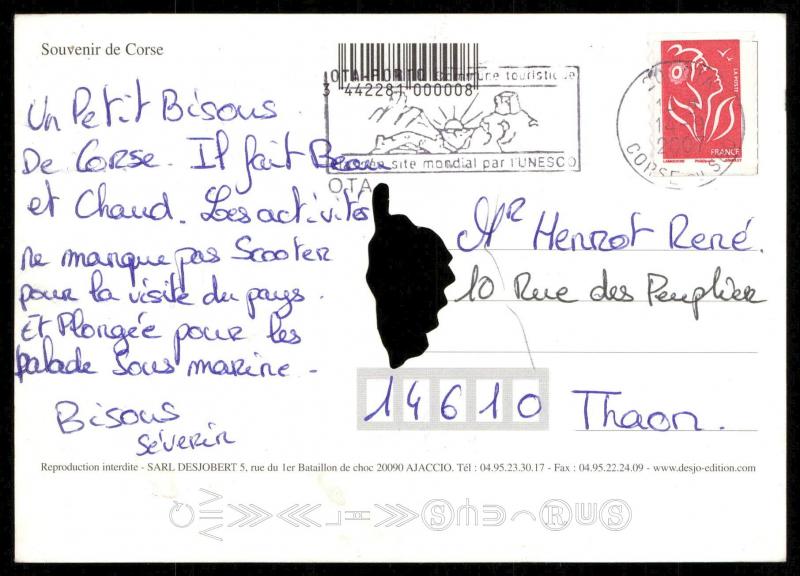 Souvenir de Corse
OTA-PORTO commune touristique
3 442281 000008
site mondial par l'UNESCO
OTA
CORSE DU S
2007
LA POSTE
FRANCE
Un Petit Bisous
De Corse. Il fait Beau
et Chaud. Les activités
ne manque pas Scooter
pour la visite du pays.
Et Plongée pour les
balade Sous marine -
Bisous
Séverin
Mr Henrot René.
10 Rue des Peuplier
14610 Thaon.
Reproduction interdite - SARL DESJOBERT 5, rue du 1er Bataillon de choc 20090 AJACCIO. Tél : 04.95.23.30.17 - Fax : 04.95.22.24.09 - www.desjo-edition.com